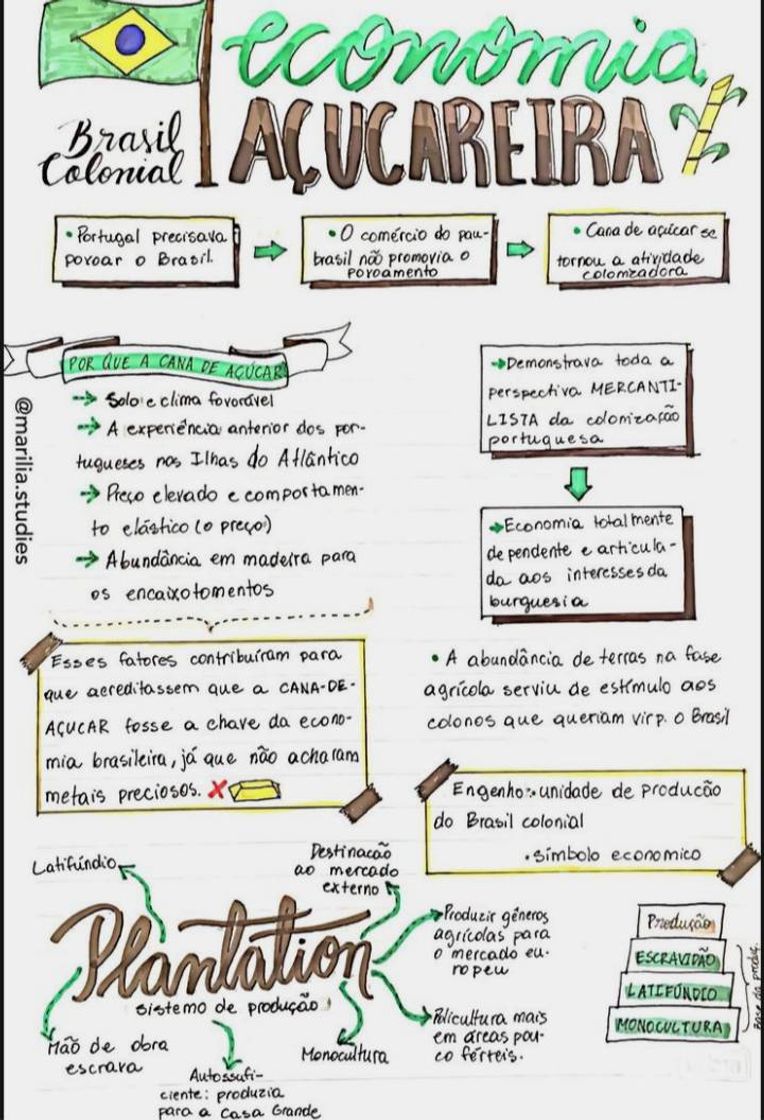 economia
AÇUCAREIRA
Brasil
Colonial
• Portugal precisava
povoar o Brasil.
• O comércio do pau-
brasil não promovia o
povoamento
• Cana de açúcar se
tornou a atividade
colonizadora
POR QUE A CANA DE AÇÚCAR
→ Solo e clima favorável
→ A experiência anterior dos por-
tugueses nas Ilhas do Atlântico
→ Preço elevado e comportamen-
to elástico (o preço)
→ Abundância em madeira para
os encaixotomentos
@marilia.studies
→ Demonstrava toda a
perspectiva MERCANTI-
LISTA da colonização
portuguesa
→ Economia totalmente
dependente e articula-
da aos interesses da
burguesia
Esses fatores contribuíram para
que aereditassem que a CANA-DE-
AÇUCAR fosse a chave da econo-
mia brasileira, já que não acharam
metais preciosos.
• A abundância de terras na fase
agrícola serviu de estímulo aos
colonos que queriam vir p. o Brasil
Engenho: unidade de producão
do Brasil colonial
• símbolo economico
Plantation
sistema de produção
Latifúndio
Destinacão
ao mercado
externo
Produzir gêneros
agrícolas para
o mercado eu-
ropeu
Policultura mais
em áreas pou-
co férteis.
Monocultura
Autossufi-
ciente: produzia
para a Casa Grande
Mão de obra
escrava
Produção
ESCRAVIDÃO
LATIFÚNDIO
MONOCULTURA
Base da produç.